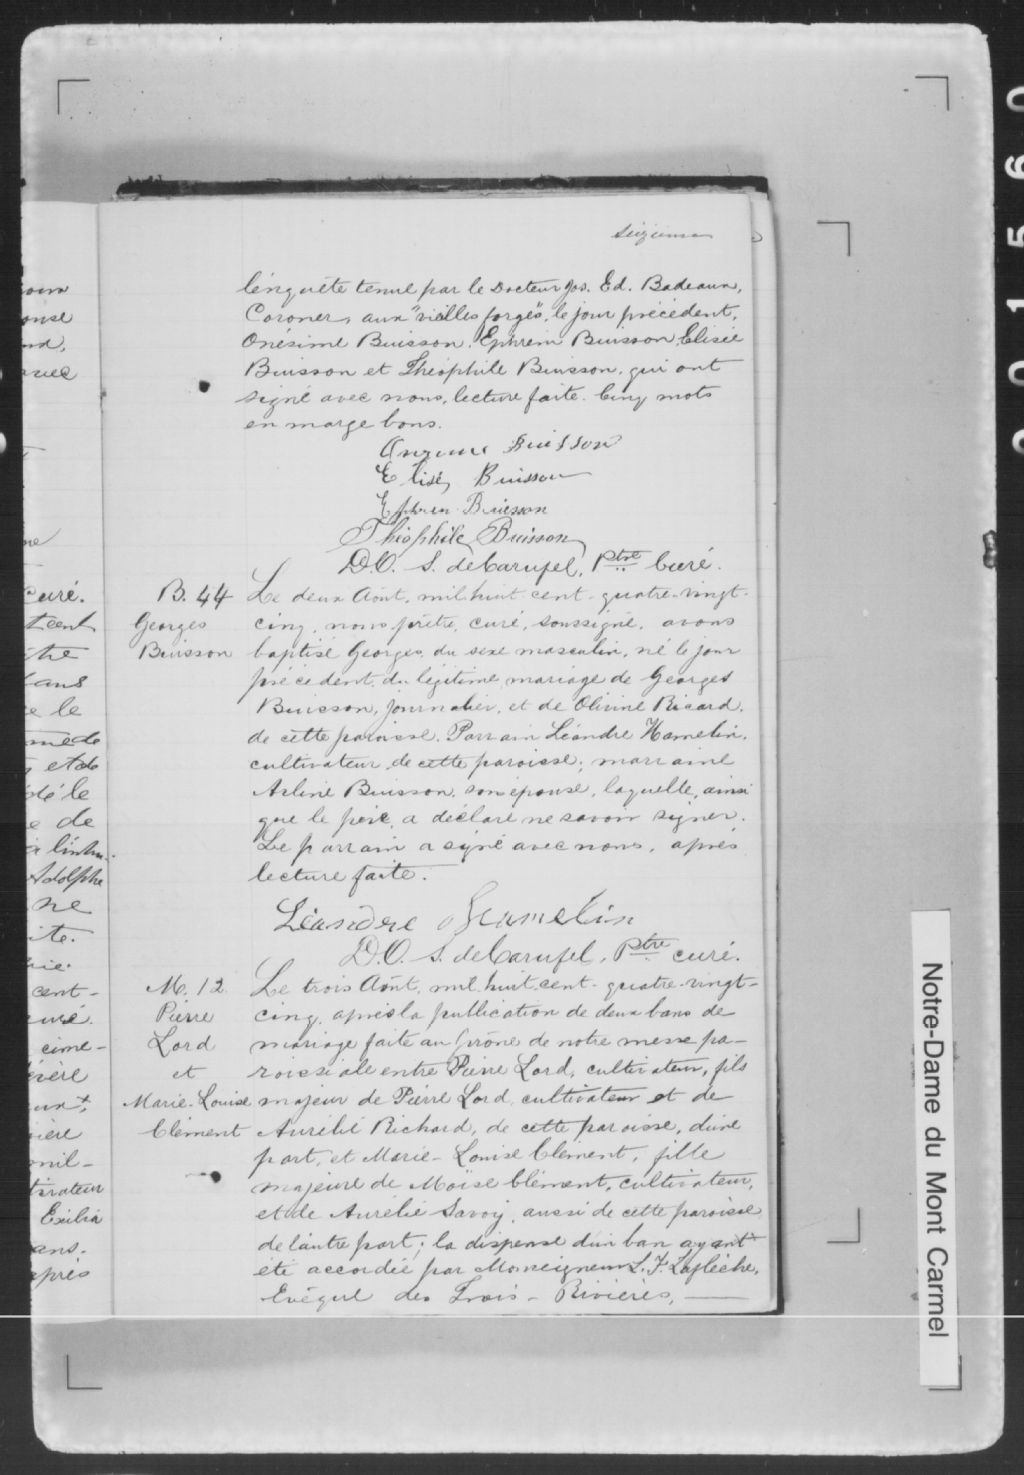 seizième
l'enquête tenue par le Docteur Jos. Ed. Badeaux,
Coroner, aux "vieilles forges", le jour précédent,
Onésime Buisson, Ephrem Buisson, Elisée
Buisson et Théophile Buisson, qui ont
signé avec nous, lecture faite. Cinq mots
en marge bons.
Onezime Buisson
Elisé Buisson
Ephrem Buisson
Théophile Buisson
D.O. S. de Carufel, Ptre Curé.
B. 44
Georges
Buisson
Le deux Août, mil huit cent quatre-vingt-
cinq, nous prêtre, curé, soussigné, avons
baptisé Georges, du sexe masculin, né le jour
précédent, du légitime mariage de Georges
Buisson, journalier, et de Olivine Ricard,
de cette paroisse. Parrain Léandre Hamelin,
cultivateur de cette paroisse; marraine
Arline Buisson, son épouse, laquelle, ainsi
que le père, a déclaré ne savoir signer.
Le parrain a signé avec nous, après
lecture faite.
Léandre Hamelin
D.O. S. de Carufel, Ptre curé.
M. 12
Pierre
Lord
et
Marie-Louise
Clément
Le trois Août, mil huit cent quatre-vingt-
cinq, après la publication de deux bans de
mariage faite au prône de notre messe pa-
roissiale entre Pierre Lord, cultivateur, fils
majeur de Pierre Lord, cultivateur et de
Aurélie Richard, de cette paroisse, d'une
part, et Marie-Louise Clément, fille
majeure de Moïse Clément, cultivateur,
et de Aurélie Savoy, aussi de cette paroisse
de l'autre part; la dispense d'un ban ayant
été accordée par Monseigneur L. F. Laflèche,
Evêque des Trois-Rivières,
curé.
cent
le
et de
le
de
Adolphe
ne
cent-
cime-
mil-
Exilia
après
Notre-Dame du Mont Carmel